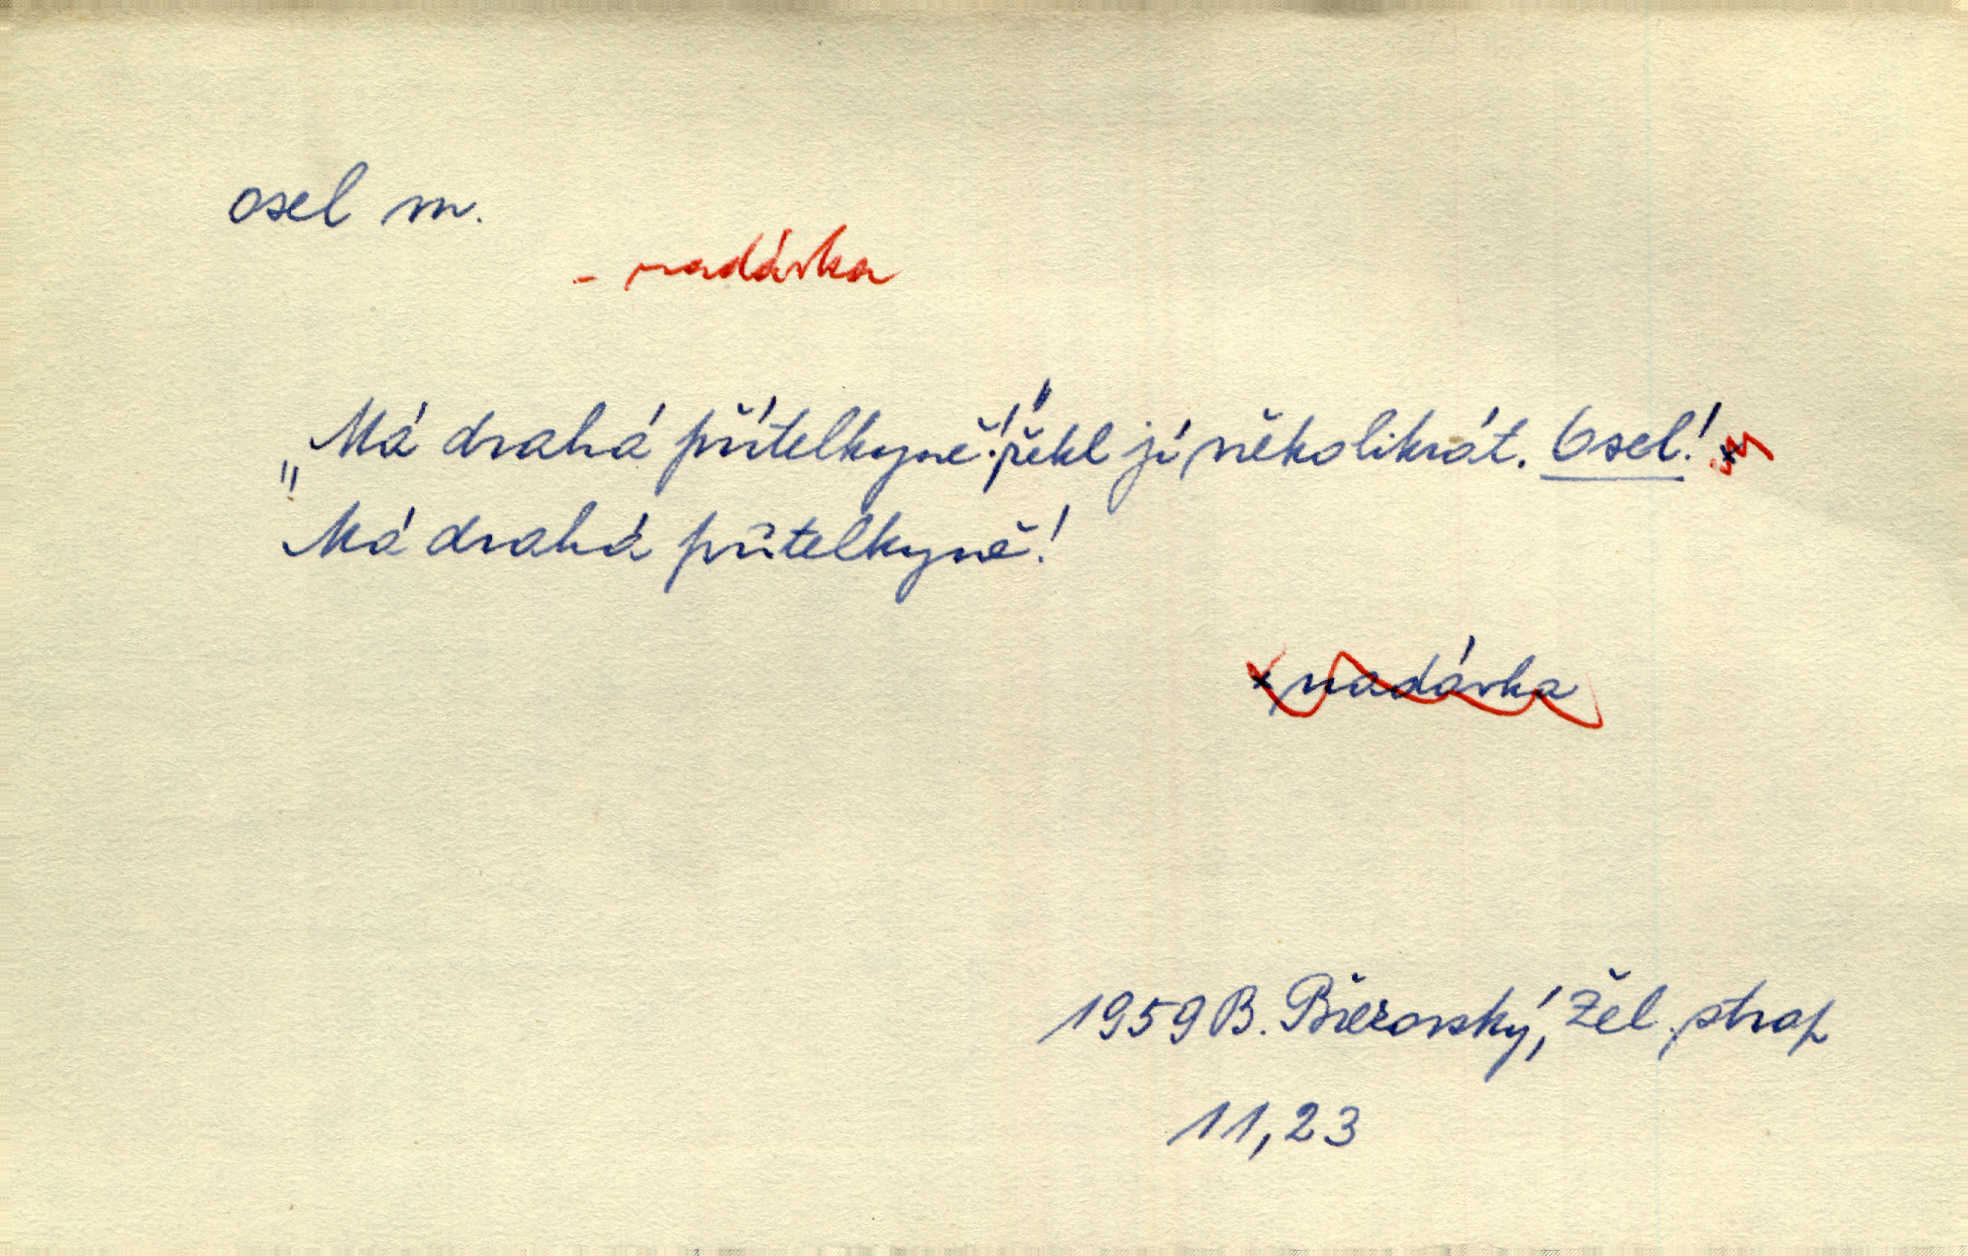 osel m.
- nadávka
„Má drahá přítelkyně!" řekl jí několikrát. Osel! x
Má drahá přítelkyně!
x nadávka
1959 B. Březovský, Žel. strop
11,23